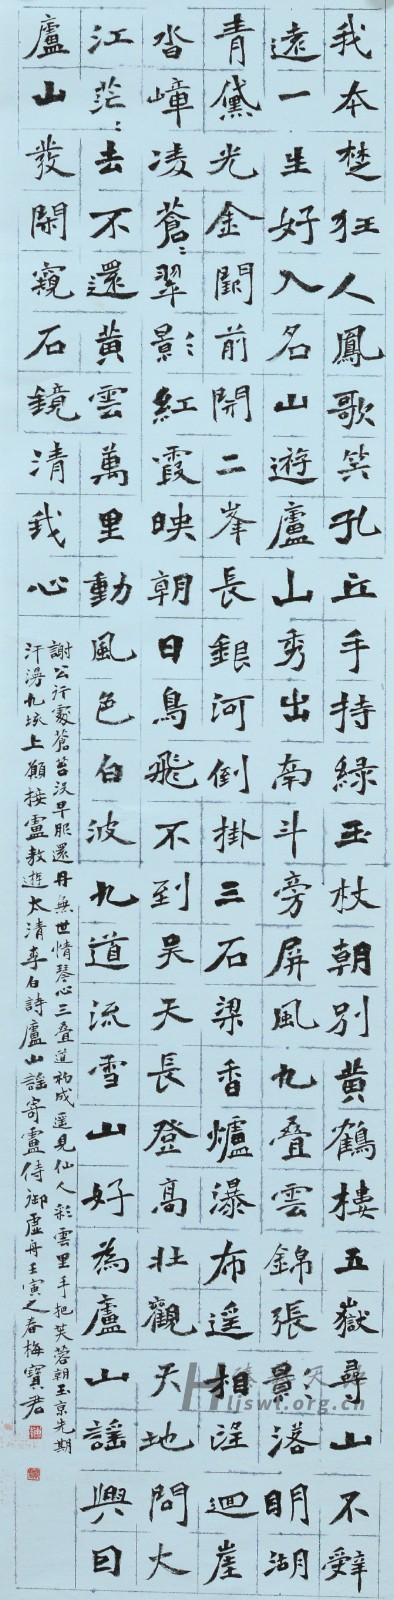 我本楚狂人鳳歌笑孔丘手持綠玉杖朝別黃鶴樓五嶽尋山不辭
遠一生好入名山遊廬山秀出南斗旁屏風九疊雲錦張景彡落明湖
青黛光金闕前開二峯長銀河倒掛三石梁香爐瀑布遥相望迴崖
沓嶂凌蒼〻翠影紅霞映朝日鳥飛不到吳天長登高壯觀天地間大
江茫〻去不還黃雲萬里動風色白波九道流雪山好為廬山謠興因
廬山發閑窺石鏡清我心
謝公行處蒼苔沒早服還丹無世情琴心三疊道初成遥見仙人彩雲里手把芙蓉朝玉京先期
汗漫九垓上願接盧敖遊太清李白詩廬山謠寄盧侍御虛舟壬寅之春梅寶君
hljswf.org.cn